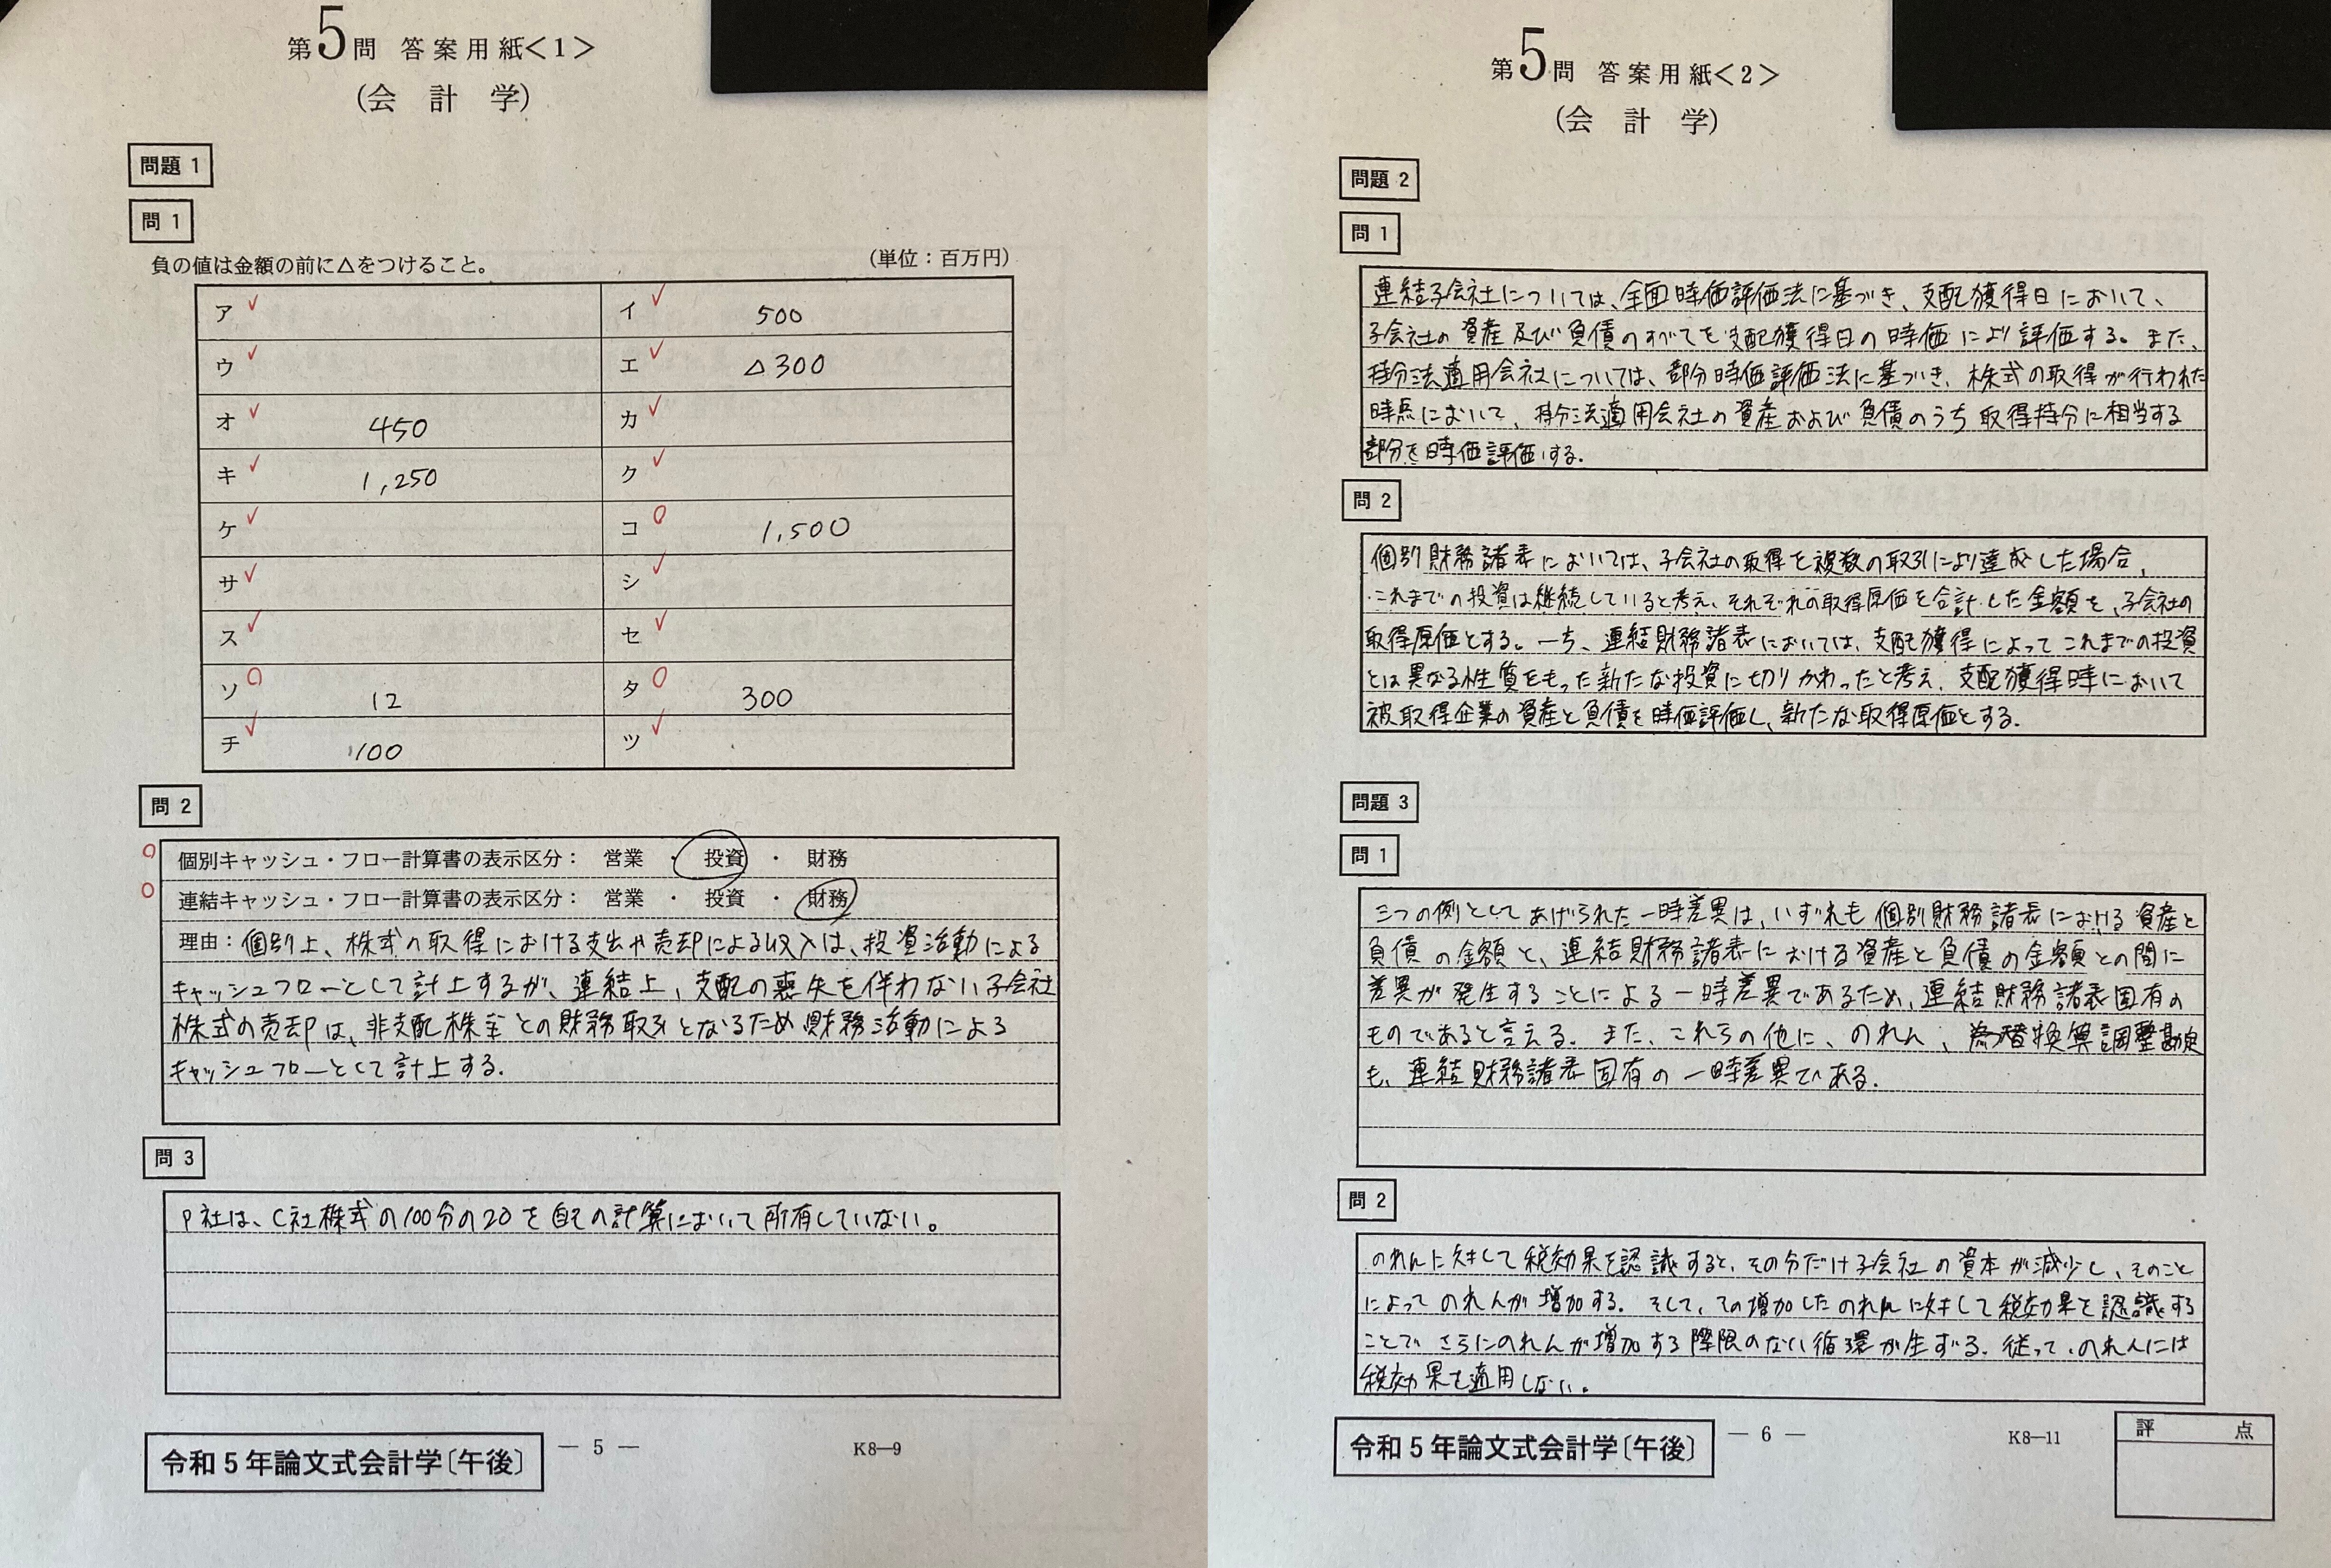 第5問 答案用紙<1>
(会計学)
問題 1
問 1
負の値は金額の前に△をつけること。
(単位：百万円)
ア イ 500
ウ エ △300
オ 450 カ
キ 1,250 ク
ケ コ 1,500
サ シ
ス セ
ソ 12 タ 300
チ 100 ツ
問 2
個別キャッシュ・フロー計算書の表示区分： 営業 ・ 投資 ・ 財務
連結キャッシュ・フロー計算書の表示区分： 営業 ・ 投資 ・ 財務
理由：個別上、株式の取得における支出や売却による収入は、投資活動による
キャッシュフローとして計上するが、連結上、支配の喪失を伴わない子会社
株式の売却は、非支配株主との財務取引となるため財務活動による
キャッシュフローとして計上する.
問 3
P社は、C社株式の100分の20を自己の計算において所有していない。
令和5年論文式会計学〔午後〕
— 5 —
K8—9
第5問 答案用紙<2>
(会計学)
問題 2
問 1
連結子会社については、全面時価評価法に基づき、支配獲得日において、
子会社の資産及び負債のすべてを支配獲得日の時価により評価する。また、
持分法適用会社については、部分時価評価法に基づき、株式の取得が行われた
時点において、持分法適用会社の資産および負債のうち取得持分に相当する
部分を時価評価する.
問 2
個別財務諸表においては、子会社の取得を複数の取引により達成した場合、
これまでの投資は継続していると考え、それぞれの取得原価を合計した金額を、子会社の
取得原価とする。一方、連結財務諸表においては、支配獲得によってこれまでの投資
とは異なる性質をもった新たな投資に切りかわったと考え、支配獲得時において
被取得企業の資産と負債を時価評価し、新たな取得原価とする.
問題 3
問 1
三つの例としてあげられた一時差異は、いずれも個別財務諸表における資産と
負債の金額と、連結財務諸表における資産と負債の金額との間に
差異が発生することによる一時差異であるため、連結財務諸表固有の
ものであると言える. また、これらの他に、のれん、為替換算調整勘定
も、連結財務諸表固有の一時差異である.
問 2
のれんに対して税効果を認識すると、その分だけ子会社の資本が減少し、そのこと
によってのれんが増加する. そして、その増加したのれんに対して税効果を認識する
ことでさらにのれんが増加する際限のない循環が生ずる. 従って、のれんには
税効果を適用しない.
令和5年論文式会計学〔午後〕
— 6 —
K8—11
評 点